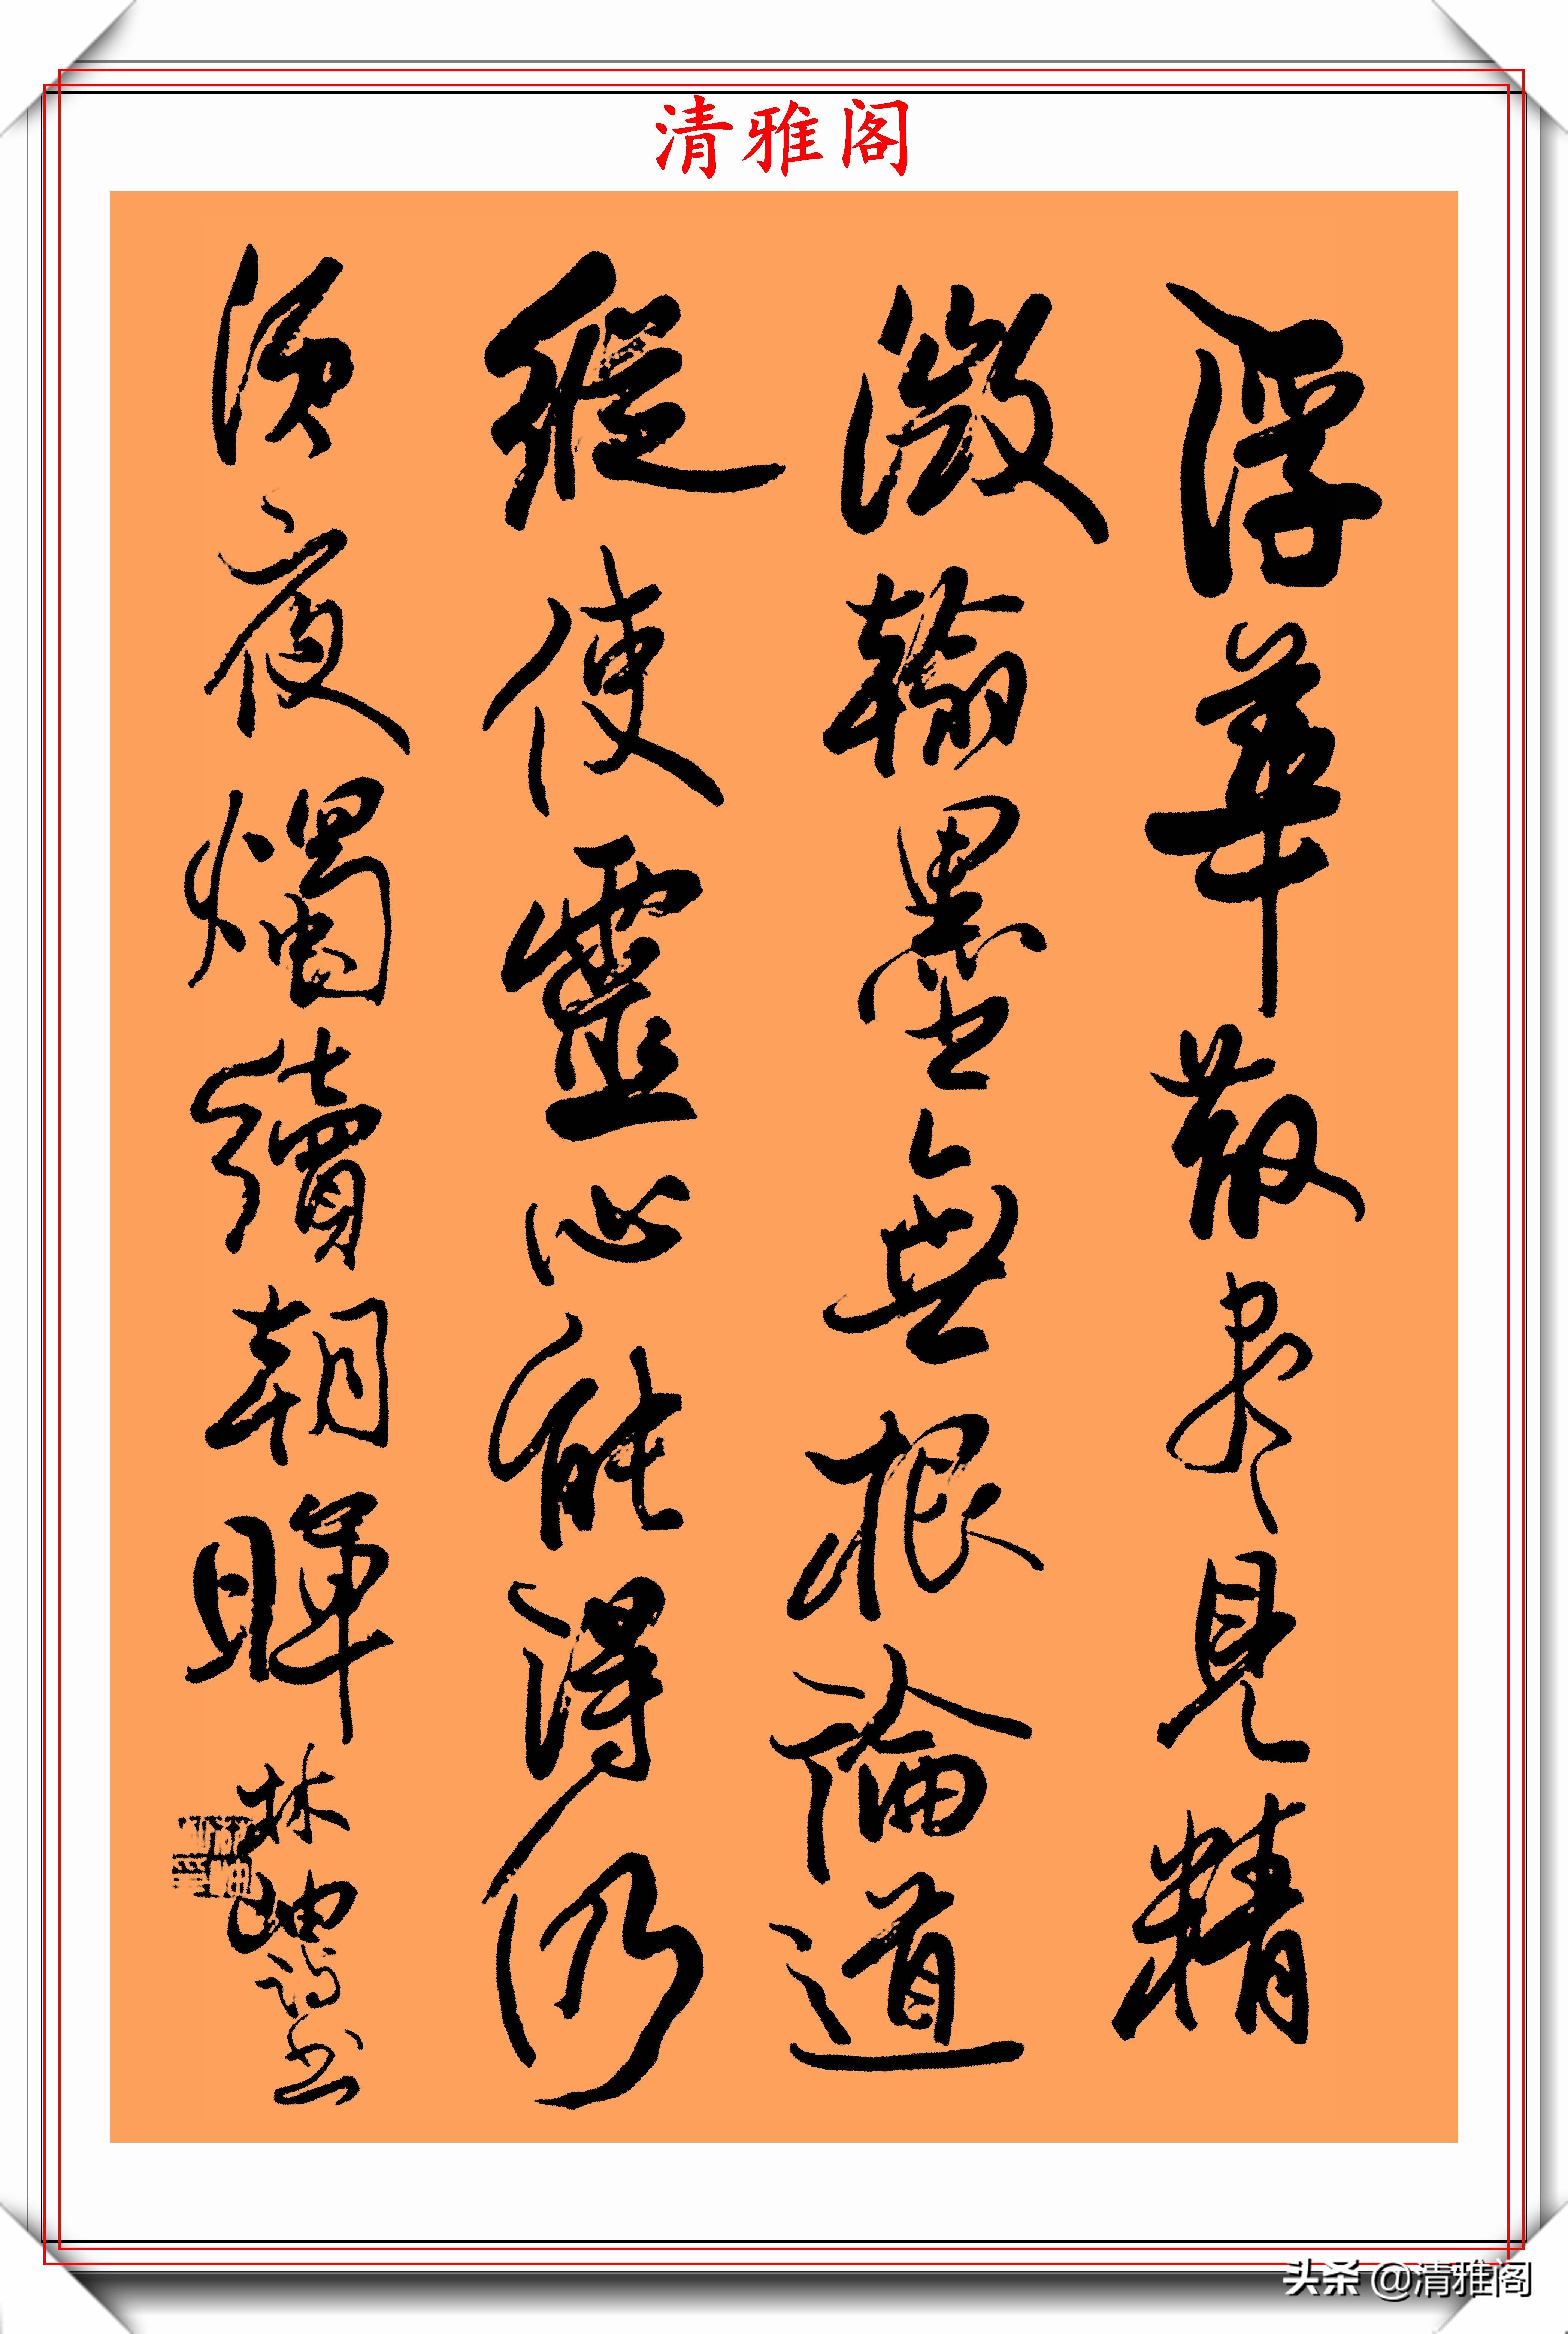 清雅阁
浮華散尽見精
微翰墨無根論道
縱使靈心能得仍
須夜燭續朝暉 林岫詩書
头条 @清雅阁